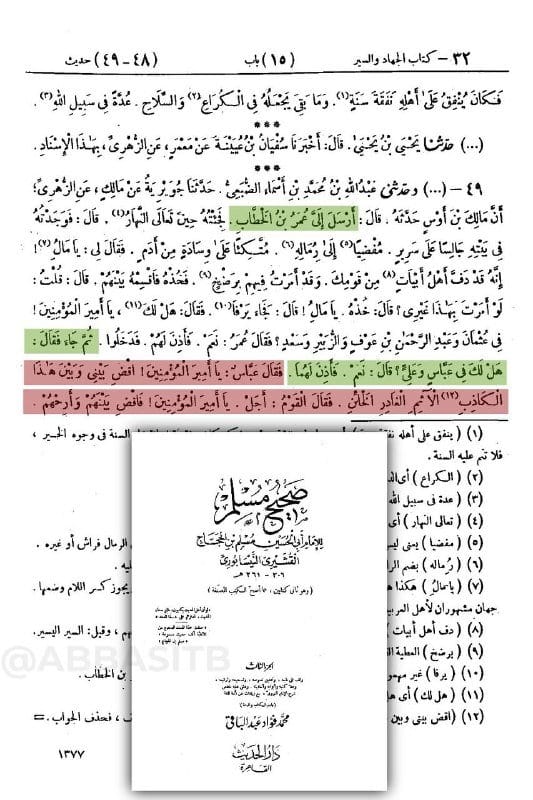 ٣٢ – كتاب الجهاد والسير (١٥) باب (٤٨-٤٩) حديث
فَكَانَ يُنْفِقُ عَلَىٰ أَهْلِهِ نَفَقَةَ سَنَةٍ (١). وَمَا بَقِيَ يَجْعَلُهُ فِي الْكُرَاعِ (٢) وَالسِّلَاحِ. عُدَّةً فِي سَبِيلِ اللهِ (٣).
***
(...) حَدَّثَنَا يَحْيَىٰ بْنُ يَحْيَىٰ. قَالَ: أَخْبَرَنَا سُفْيَانُ بْنُ عُيَيْنَةَ عَنْ مَعْمَرٍ، عَنِ الزُّهْرِيِّ، بِهَـٰذَا الْإِسْنَادِ.
***
٤٩ – (...) وحَدَّثَنِي عَبْدُ اللهِ بْنُ مُحَمَّدِ بْنِ أَسْمَاءَ الضُّبَعِيُّ. حَدَّثَنَا جُوَيْرِيَةُ عَنْ مَالِكٍ، عَنِ الزُّهْرِيِّ؛
أَنَّ مَالِكَ بْنَ أَوْسٍ حَدَّثَهُ. قَالَ: أَرْسَلَ إِلَيَّ عُمَرُ بْنُ الْخَطَّابِ. فَجِئْتُهُ حِينَ تَعَالَى النَّهَارُ (٤). قَالَ: فَوَجَدْتُهُ
فِي بَيْتِهِ جَالِسًا عَلَىٰ سَرِيرٍ. مُفْضِيًا (٥) إِلَىٰ رِمَالِهِ (٦). مُتَّكِئًا عَلَىٰ وِسَادَةٍ مِنْ أَدَمٍ. فَقَالَ لِي: يَا مَالُ (٧)!
إِنَّهُ قَدْ دَفَّ أَهْلُ أَبْيَاتٍ (٨) مِنْ قَوْمِكَ. وَقَدْ أَمَرْتُ فِيهِمْ بِرَضْخٍ (٩). فَخُذْهُ فَاقْسِمْهُ بَيْنَهُمْ. قَالَ: قُلْتُ:
لَوْ أَمَرْتَ بِهَـٰذَا غَيْرِي؟ قَالَ: خُذْهُ. يَا مَالُ! قَالَ: فَجَاءَ يَرْفَا (١٠). فَقَالَ: هَلْ لَكَ (١١)، يَا أَمِيرَ الْمُؤْمِنِينَ!
فِي عُثْمَانَ وَعَبْدِ الرَّحْمَـٰنِ بْنِ عَوْفٍ وَالزُّبَيْرِ وَسَعْدٍ؟ فَقَالَ عُمَرُ: نَعَمْ. فَأَذِنَ لَهُمْ. فَدَخَلُوا. ثُمَّ جَاءَ فَقَالَ:
هَلْ لَكَ فِي عَبَّاسٍ وَعَلِيٍّ؟ قَالَ: نَعَمْ. فَأَذِنَ لَهُمَا. فَقَالَ عَبَّاسٌ: يَا أَمِيرَ الْمُؤْمِنِينَ! اقْضِ بَيْنِي وَبَيْنَ هَـٰذَا
الْكَاذِبِ (١٢) الْآثِمِ الْغَادِرِ الْخَائِنِ. فَقَالَ الْقَوْمُ: أَجَلْ. يَا أَمِيرَ الْمُؤْمِنِينَ! فَاقْضِ بَيْنَهُمْ وَأَرِحْهُمْ.
(١) (ينفق على أهله نفقة السنة في وجوه الخير،
فلا تتم عليه السنة.
(٢) (الكراع) أى
(٣) (عدة في سبيل الله
(٤) (تعالى النهار) أى
(٥) (مفضيا) يعنى ليس الرمال فراش أو غيره.
(٦) (رماله) بضم الر
(٧) (يامال) هكذا يجوز كسر اللام وضمها.
جهان مشهوران لأهل العربي
(٨) (دف أهل أبيات) هم، وقيل: السير اليسير.
(٩) (برضخ) العطية
(١٠) (يرفا) غير مهمو بن الخطاب.
(١١) (هل لك) أى
(١٢) (اقض بينى وبين ف، فحذف الجواب. =
١٣٧٧
صحيح مسلم
للإمام أبي الحسين مسلم بن الحجاج
القشيري النيسابوري
٢٠٦ – ٢٦١ هـ
(وهو ثاني كتابين، هما أصح الكتب المصنفة)
الجزء الثالث
محمد فؤاد عبد الباقي
دار الحديث
القاهرة
@ABBASITB